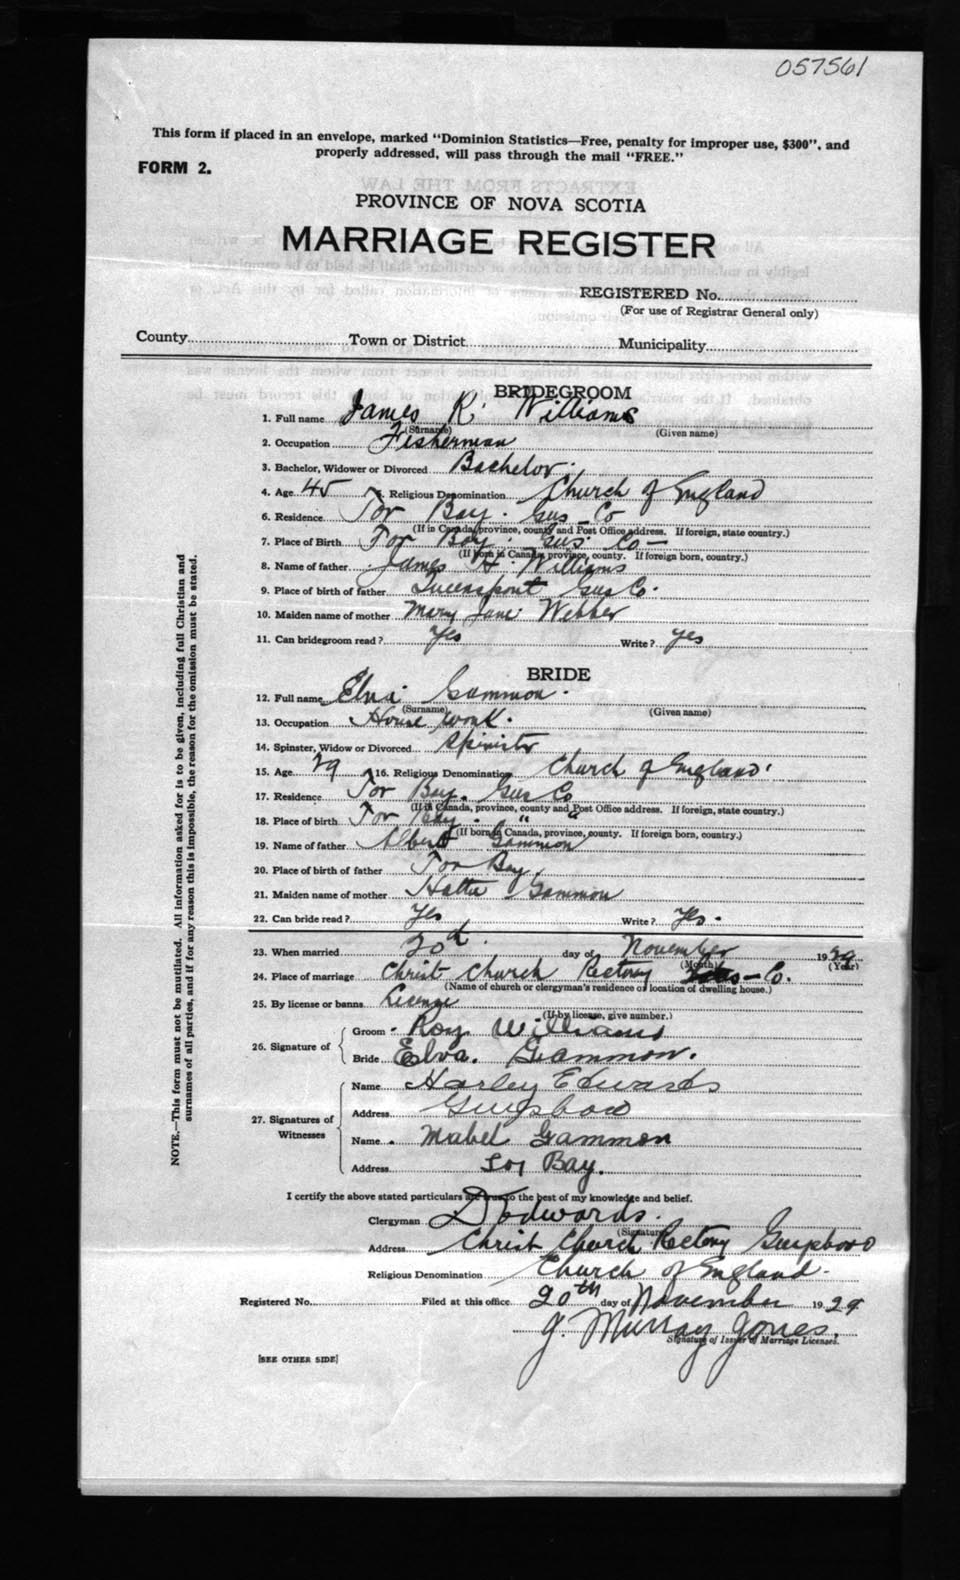 057561
This form if placed in an envelope, marked "Dominion Statistics—Free, penalty for improper use, $300", and
properly addressed, will pass through the mail "FREE."
FORM 2.
PROVINCE OF NOVA SCOTIA
MARRIAGE REGISTER
REGISTERED No.
(For use of Registrar General only)
County Town or District Municipality
BRIDEGROOM
1. Full name James R. Williams
(Surname) (Given name)
2. Occupation Fisherman
3. Bachelor, Widower or Divorced Bachelor.
4. Age 45 5. Religious Denomination Church of England
6. Residence Tor Bay. Gus Co
(If in Canada, province, county and Post Office address. If foreign, state country.)
7. Place of Birth Tor Bay. Gus. Co
(If born in Canada, province, county. If foreign born, country.)
8. Name of father James H. Williams
9. Place of birth of father Queensport Gus Co.
10. Maiden name of mother Mary Jane Webber
11. Can bridegroom read? Yes Write? yes
BRIDE
12. Full name Elva Gammon.
(Surname) (Given name)
13. Occupation House work.
14. Spinster, Widow or Divorced Spinster
15. Age 29 16. Religious Denomination Church of England.
17. Residence Tor Bay. Gus Co
(If in Canada, province, county and Post Office address. If foreign, state country.)
18. Place of birth Tor Bay. " "
(If born in Canada, province, county. If foreign born, country.)
19. Name of father Albert Gammon
20. Place of birth of father Tor Bay.
21. Maiden name of mother Hattie Gammon
22. Can bride read? Yes Write? Yes.
23. When married 20th. day of November 1929
(Month) (Year)
24. Place of marriage Christ Church Rectory Co.
(Name of church or clergyman's residence or location of dwelling house.)
25. By license or banns License
(If by license, give number.)
26. Signature of Groom Roy Williams
Bride Elva. Gammon.
27. Signatures of Witnesses Name Harley Edwards
Address Guysboro
Name Mabel Gammon
Address Tor Bay.
I certify the above stated particulars are true to the best of my knowledge and belief.
Clergyman D Edwards.
(Signature)
Address Christ Church Rectory Guysboro
Religious Denomination Church of England.
Registered No. Filed at this office 20th day of November 1929
J. Murray Jones.
Signature of Issuer of Marriage Licenses.
[SEE OTHER SIDE]
NOTE.—This form must not be mutilated. All information asked for is to be given, including full Christian and
surnames of all parties, and if for any reason this is impossible, the reason for the omission must be stated.